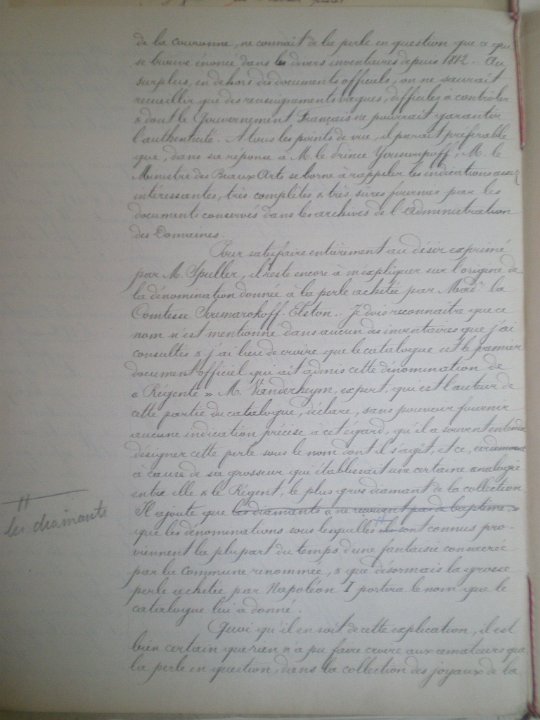 de la couronne, ne connaît de la perle en question que ce qui
se trouve énoncé dans les divers inventaires depuis 1812. Au
surplus, en dehors des documents officiels, on ne saurait
recueillir que des renseignements vagues, difficiles à contrôler
& dont le Gouvernement Français ne pourrait garantir
l'authenticité. A tous les points de vue, il paraît préférable
que, dans sa réponse à M. le prince Youssoupoff, M. le
Ministre des Beaux Arts se borne à rappeler les indications assez
intéressantes, très complètes & très sûres fournies par les
documents conservés dans les archives de l'Administration
des Domaines.
Pour satisfaire entièrement au désir exprimé
par M. Spuller, il reste encore à m'expliquer sur l'origine de
la dénomination donnée à la perle achetée par Made la
Comtesse Soumarokoff-Elston. Je dois reconnaître que ce
nom n'est mentionné dans aucun des inventaires que j'ai
consultés & j'ai lieu de croire que le catalogue est le premier
document officiel qui ait admis cette dénomination de
« Régente » M. Vanderheym, expert, qui est l'auteur de
cette partie du catalogue, déclare, sans pouvoir fournir
aucune indication précise à cet égard, qu'il a souvent entendu
désigner cette perle sous le nom dont il s'agit, et ce,
à cause de sa grosseur qui établirait une certaine analogie
entre elle & le Régent, le plus gros diamant de la collection
Il ajoute que les diamants « ne reçoivent pas de baptême »
que les dénominations sous lesquelles ils sont connus pro-
viennent la plupart du temps d'une fantaisie consacrée
par la commune renommée, & que désormais la grosse
perle achetée par Napoléon I portera le nom que le
catalogue lui a donné.
Quoi qu'il en soit de cette explication, il est
bien certain que rien n'a pu faire croire aux amateurs que
la perle en question, dans la collection des joyaux de la
les diamants